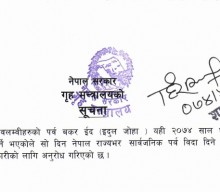 नेपाल सरकार
गृह मन्त्रालयको
सूचना
बलम्बीहरुको पर्व बकर ईद (इदुल जोहा ) यही २०७४ साल
भएकोले सो दिन नेपाल राज्यभर सार्वजनिक पर्व विदा दिने
कारीको लागि अनुरोध गरिएको छ ।